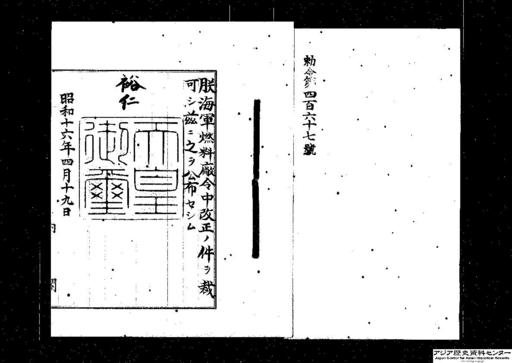 勅令第四百六十七號
朕海軍燃料廠令中改正ノ件ヲ裁
可シ茲ニ之ヲ公布セシム
裕仁
天皇
御璽
昭和十六年四月十九日
内閣
アジア歴史資料センター
Japan Center for Asian Historical Records